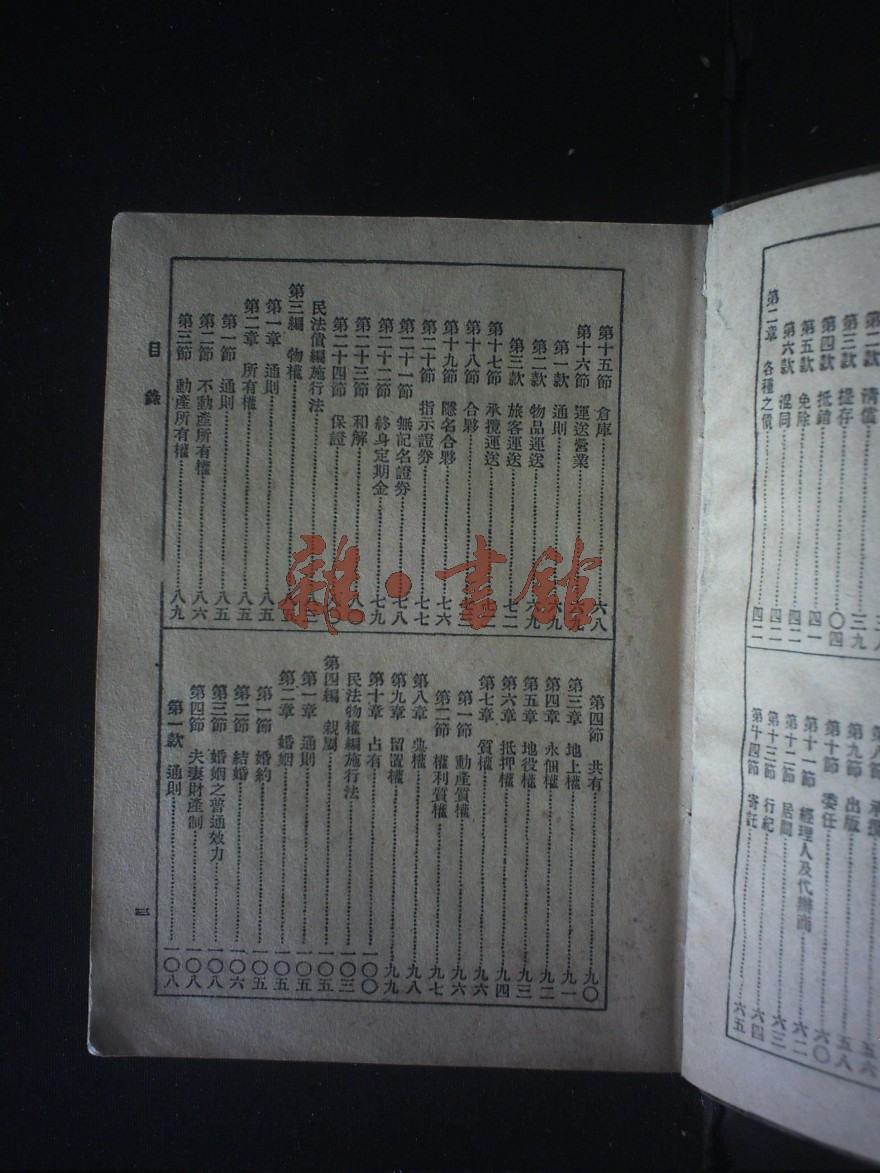 第二款 清償
第三款 提存……三九
第四款 抵銷……〇四
第五款 免除……四一
第六款 混同……四二
第二章 各種之債……四二
第八節 承攬……五六
第九節 出版……五八
第十節 委任……六〇
第十一節 經理人及代辦商……六二
第十二節 居間……六三
第十三節 行紀……六四
第十四節 寄託……六五
第十五節 倉庫……六八
第十六節 運送營業……六九
第一款 通則……六九
第二款 物品運送……六九
第三款 旅客運送……七二
第十七節 承攬運送……
第十八節 合夥……七三
第十九節 隱名合夥……七六
第二十節 指示證券……七七
第二十一節 無記名證券……七八
第二十二節 終身定期金……七九
第二十三節 和解……八〇
第二十四節 保證……
民法債編施行法……
第三編 物權……
第一章 通則……八五
第二章 所有權……八五
第一節 通則……八五
第二節 不動產所有權……八六
第三節 動產所有權……八九
第四節 共有……九〇
第三章 地上權……九一
第四章 永佃權……九二
第五章 地役權……九三
第六章 抵押權……九四
第七章 質權……九六
第一節 動產質權……九六
第二節 權利質權……九七
第八章 典權……九八
第九章 留置權……九九
第十章 占有……一〇〇
民法物權編施行法……一〇三
第四編 親屬……一〇五
第一章 通則……一〇五
第二章 婚姻……一〇五
第一節 婚約……一〇五
第二節 結婚……一〇六
第三節 婚姻之普通效力……一〇八
第四節 夫妻財產制……一〇八
第一款 通則……一〇八
目錄
三
雜·書館